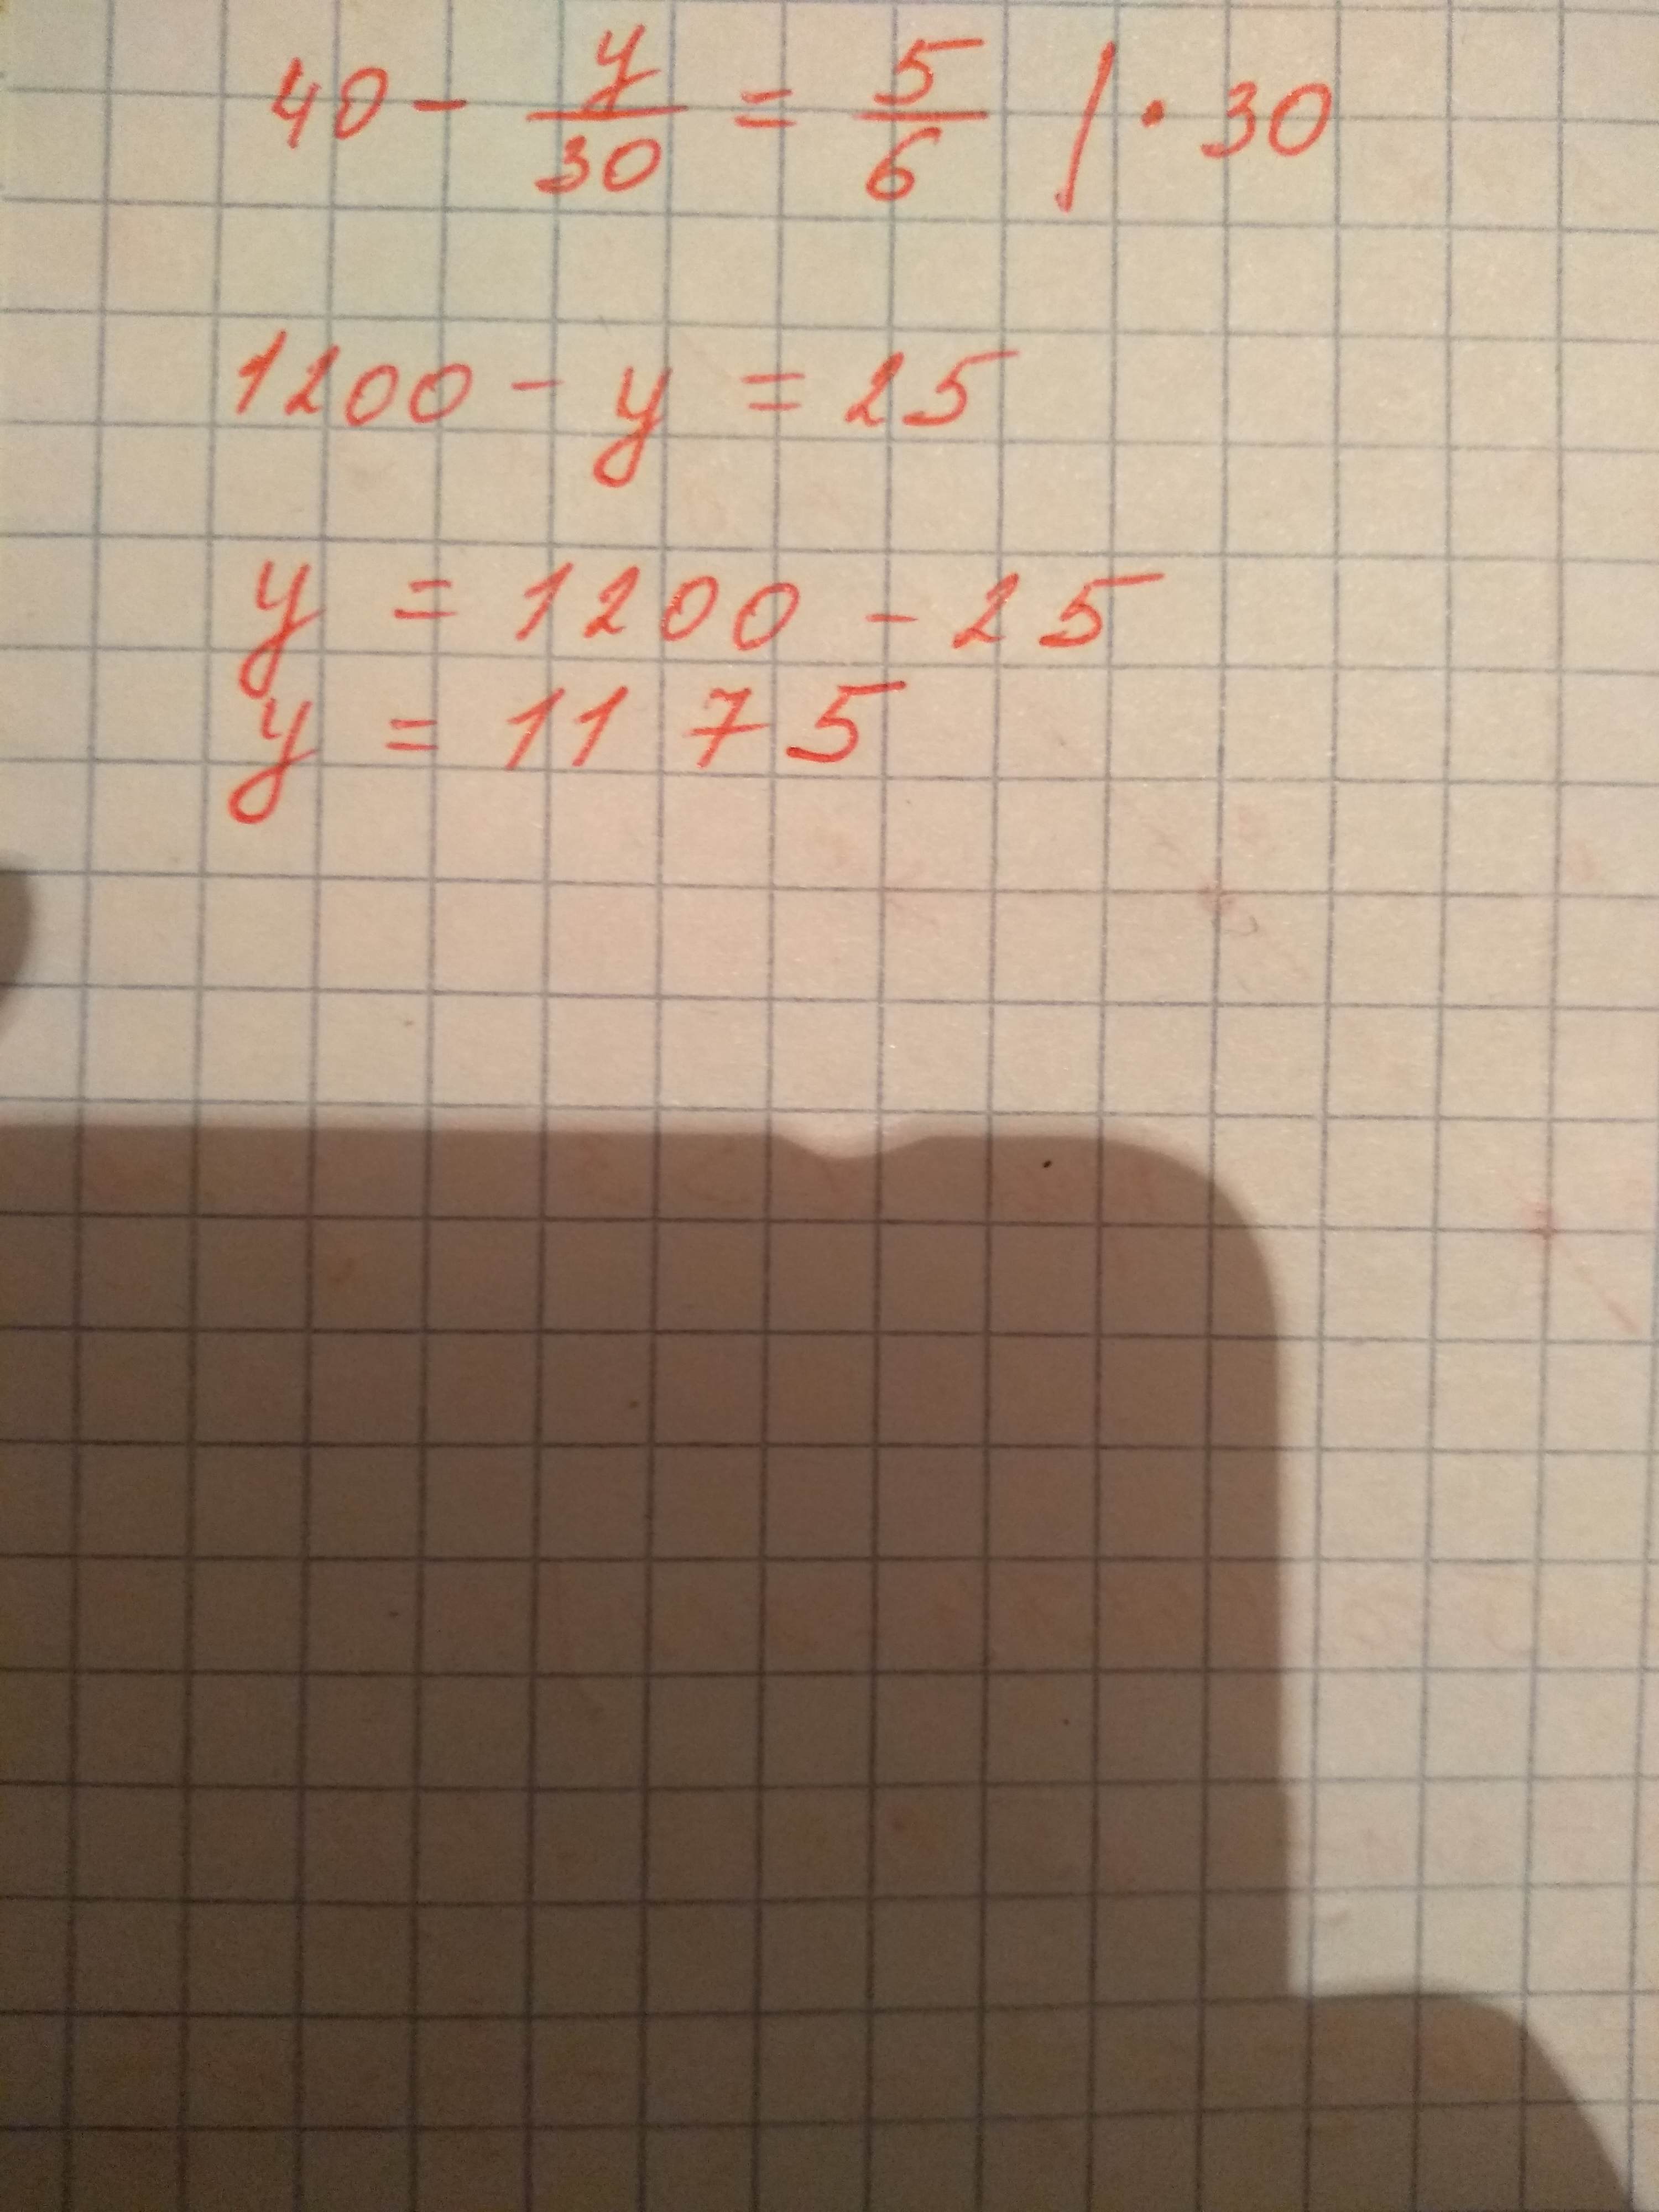 40 - y/30 = 5/6 | · 30
1200 - y = 25
y = 1200 - 25
y = 1175